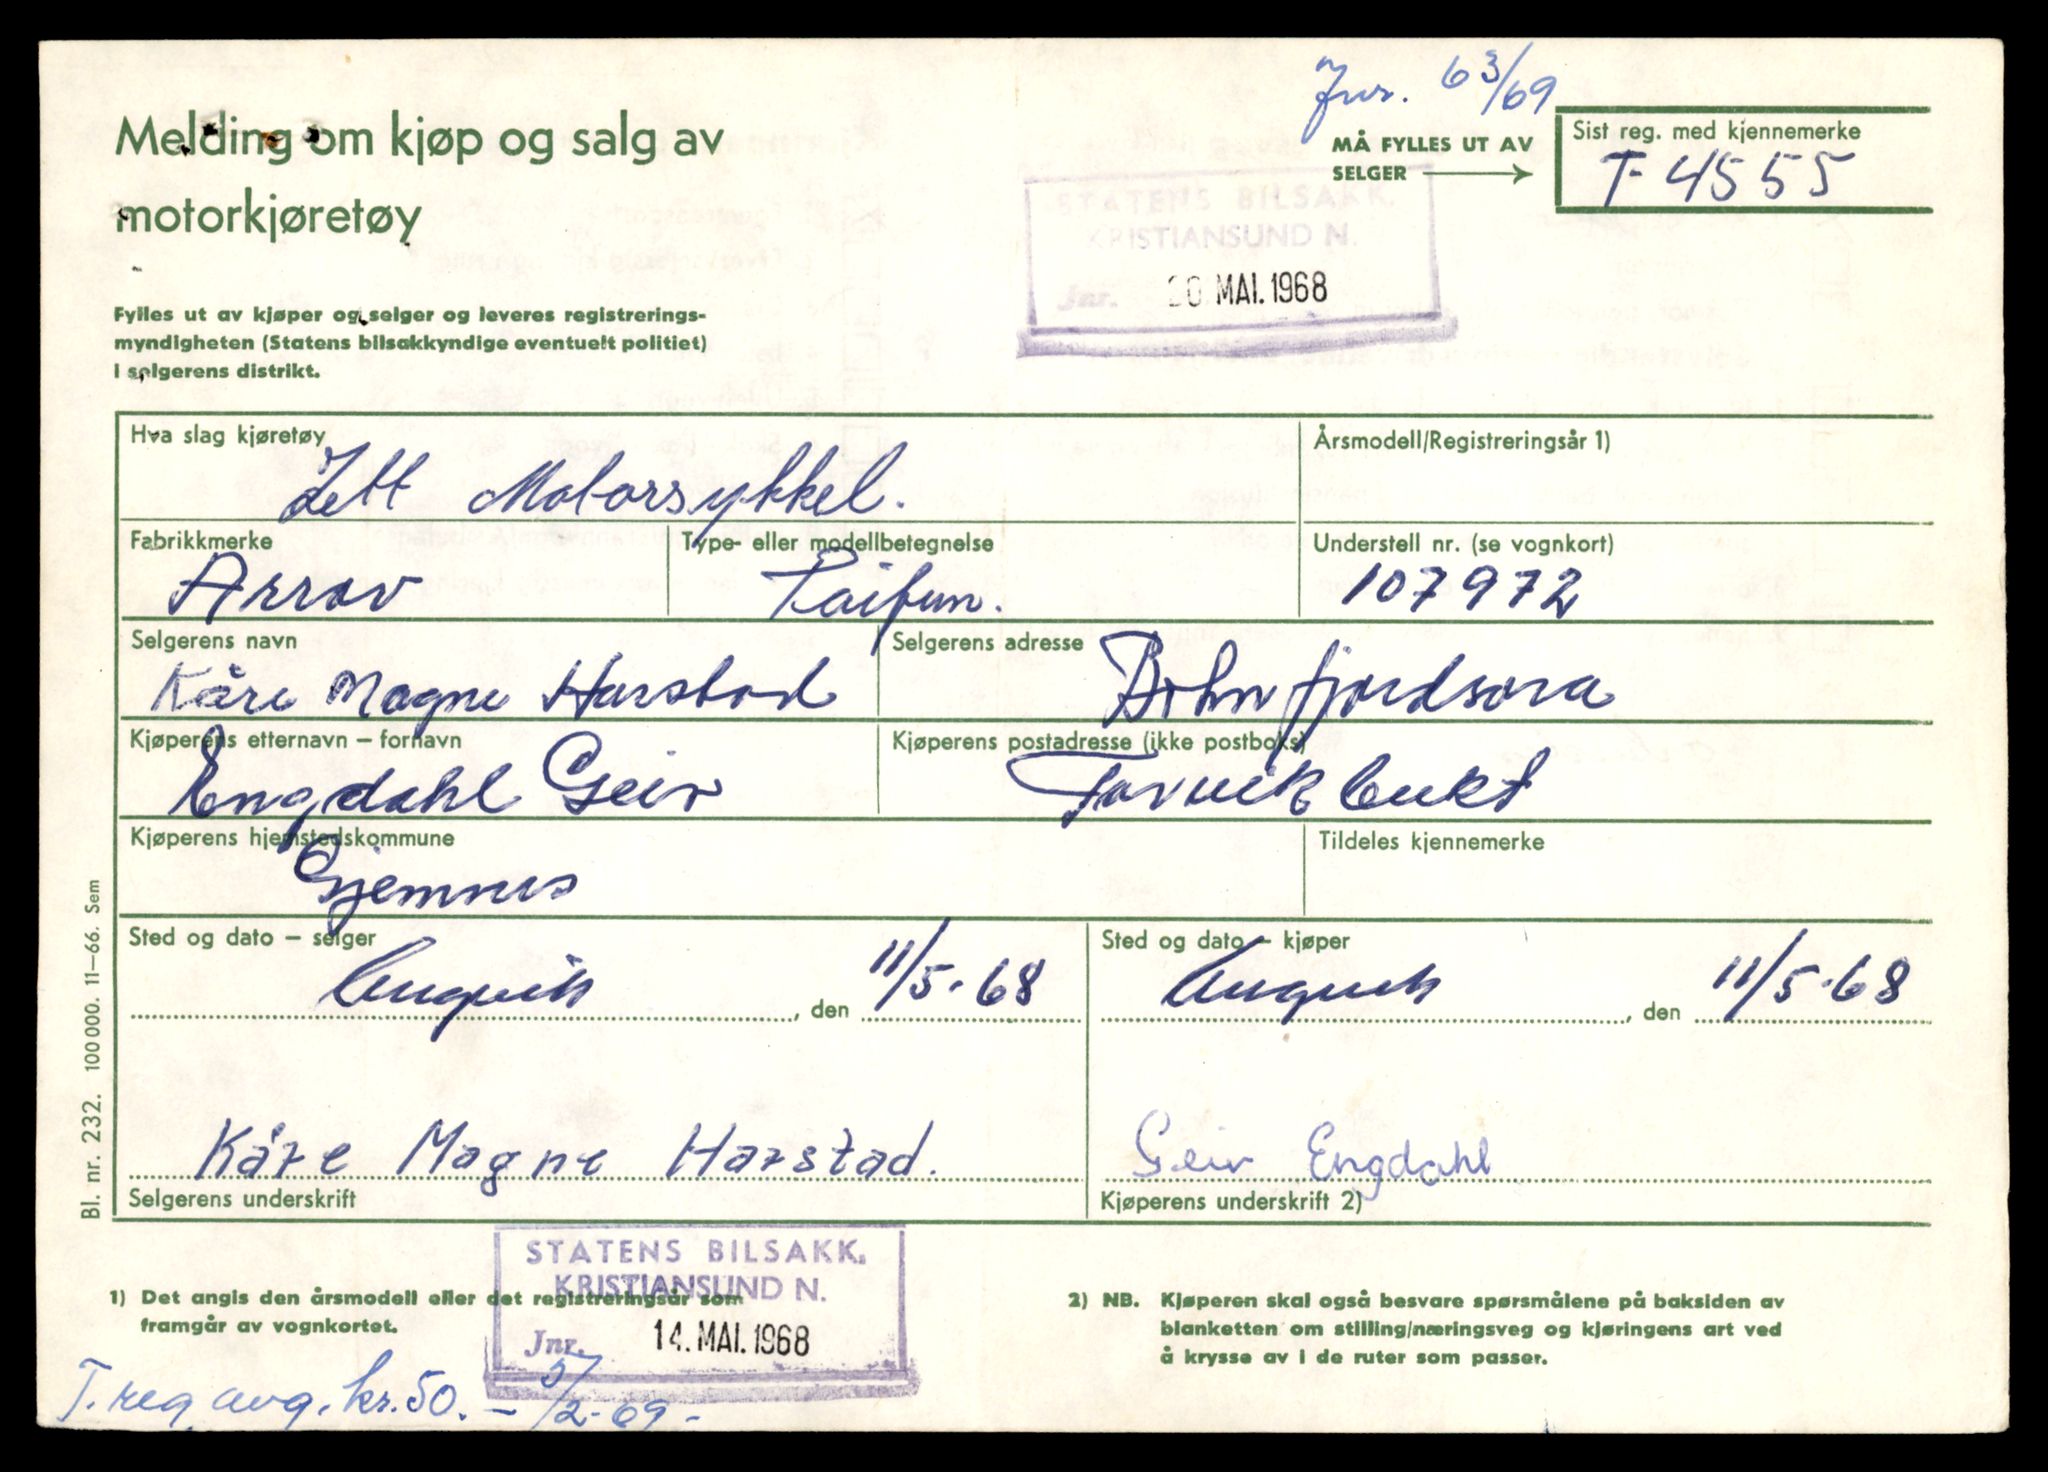 Jnr. 63/69
Melding om kjøp og salg av
motorkjøretøy
MÅ FYLLES UT AV
SELGER
Sist reg. med kjennemerke
T-4555
STATENS BILSAKK.
KRISTIANSUND N.
Jnr. 20. MAI. 1968
Fylles ut av kjøper og selger og leveres registrerings-
myndigheten (Statens bilsakkyndige eventuelt politiet)
i selgerens distrikt.
Hva slag kjøretøy
Lett Motorsykkel.
Årsmodell/Registreringsår 1)
Fabrikkmerke
Arrov
Type- eller modellbetegnelse
Taifun.
Understell nr. (se vognkort)
107972
Selgerens navn
Kåre Magne Harstad
Selgerens adresse
fjordsøra
Kjøperens etternavn – fornavn
Engdahl Geir
Kjøperens postadresse (ikke postboks)
Torvikbukt
Kjøperens hjemstedskommune
Gjemnes
Tildeles kjennemerke
Sted og dato – selger
Angvik, den 11/5-68
Sted og dato – kjøper
Angvik, den 11/5-68
Kåre Magne Harstad.
Selgerens underskrift
Geir Engdahl
Kjøperens underskrift 2)
Bl. nr. 232. 100 000. 11–66. Sem
STATENS BILSAKK.
KRISTIANSUND N.
Jnr. 14. MAI. 1968
1) Det angis den årsmodell eller det registreringsår som
framgår av vognkortet.
2) NB. Kjøperen skal også besvare spørsmålene på baksiden av
blanketten om stilling/næringsveg og kjøringens art ved
å krysse av i de ruter som passer.
T. reg. avg. kr. 50. – 5/2-69 -